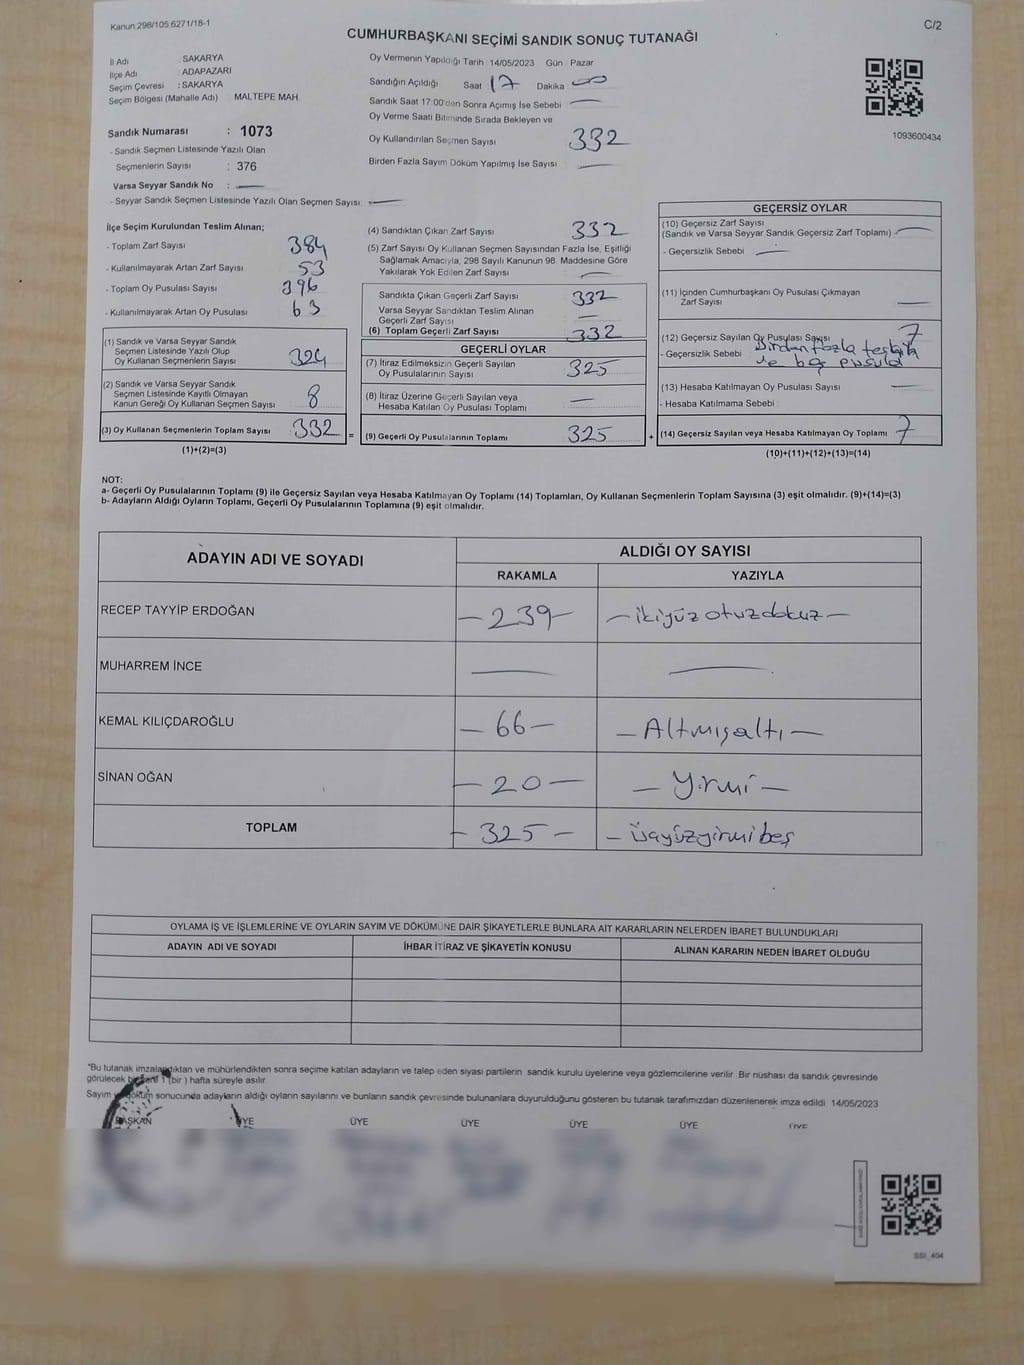 Kanun 298/105 6271/18-1
C/2
CUMHURBAŞKANI SEÇİMİ SANDIK SONUÇ TUTANAĞI
İl Adı : SAKARYA
İlçe Adı : ADAPAZARI
Seçim Çevresi : SAKARYA
Seçim Bölgesi (Mahalle Adı) MALTEPE MAH.
Sandık Numarası : 1073
- Sandık Seçmen Listesinde Yazılı Olan
Seçmenlerin Sayısı : 376
Varsa Seyyar Sandık No : —
- Seyyar Sandık Seçmen Listesinde Yazılı Olan Seçmen Sayısı: —
Oy Vermenin Yapıldığı Tarih 14/05/2023 Gün Pazar
Sandığın Açıldığı Saat 17 Dakika 00
Sandık Saat 17:00'den Sonra Açımış İse Sebebi —
Oy Verme Saati Bitiminde Sırada Bekleyen ve
Oy Kullandırılan Seçmen Sayısı 332
Birden Fazla Sayım Döküm Yapılmış İse Sayısı —
1093600434
İlçe Seçim Kurulundan Teslim Alınan;
- Toplam Zarf Sayısı 384
- Kullanılmayarak Artan Zarf Sayısı 53
- Toplam Oy Pusulası Sayısı 396
- Kullanılmayarak Artan Oy Pusulası 63
(1) Sandık ve Varsa Seyyar Sandık
Seçmen Listesinde Yazılı Olup
Oy Kullanan Seçmenlerin Sayısı 324
(2) Sandık ve Varsa Seyyar Sandık
Seçmen Listesinde Kayıtlı Olmayan
Kanun Gereği Oy Kullanan Seçmen Sayısı 8
(3) Oy Kullanan Seçmenlerin Toplam Sayısı 332 =
(1)+(2)=(3)
(4) Sandıktan Çıkan Zarf Sayısı 332
(5) Zarf Sayısı Oy Kullanan Seçmen Sayısından Fazla İse, Eşitliği
Sağlamak Amacıyla, 298 Sayılı Kanunun 98. Maddesine Göre
Yakılarak Yok Edilen Zarf Sayısı —
Sandıkta Çıkan Geçerli Zarf Sayısı 332
Varsa Seyyar Sandıktan Teslim Alınan
Geçerli Zarf Sayısı —
(6) Toplam Geçerli Zarf Sayısı 332
GEÇERLİ OYLAR
(7) İtiraz Edilmeksizin Geçerli Sayılan
Oy Pusulalarının Sayısı 325
(8) İtiraz Üzerine Geçerli Sayılan veya
Hesaba Katılan Oy Pusulası Toplamı —
(9) Geçerli Oy Pusulalarının Toplamı 325 +
GEÇERSİZ OYLAR
(10) Geçersiz Zarf Sayısı
(Sandık ve Varsa Seyyar Sandık Geçersiz Zarf Toplamı) —
- Geçersizlik Sebebi —
(11) İçinden Cumhurbaşkanı Oy Pusulası Çıkmayan
Zarf Sayısı —
(12) Geçersiz Sayılan Oy Pusulası Sayısı 7
- Geçersizlik Sebebi Birden fazla
ve boş pusula
(13) Hesaba Katılmayan Oy Pusulası Sayısı —
- Hesaba Katılmama Sebebi
(14) Geçersiz Sayılan veya Hesaba Katılmayan Oy Toplamı 7
(10)+(11)+(12)+(13)=(14)
NOT:
a- Geçerli Oy Pusulalarının Toplamı (9) ile Geçersiz Sayılan veya Hesaba Katılmayan Oy Toplamı (14) Toplamları, Oy Kullanan Seçmenlerin Toplam Sayısına (3) eşit olmalıdır. (9)+(14)=(3)
b- Adayların Aldığı Oyların Toplamı, Geçerli Oy Pusulalarının Toplamına (9) eşit olmalıdır.
ADAYIN ADI VE SOYADI
ALDIĞI OY SAYISI
RAKAMLA YAZIYLA
RECEP TAYYİP ERDOĞAN -239- -ikiyüzotuzdokuz-
MUHARREM İNCE — —
KEMAL KILIÇDAROĞLU -66- -Altmışaltı-
SİNAN OĞAN -20- -Yirmi-
TOPLAM -325- -üçyüzyirmibeş
OYLAMA İŞ VE İŞLEMLERİNE VE OYLARIN SAYIM VE DÖKÜMÜNE DAİR ŞİKAYETLERLE BUNLARA AİT KARARLARIN NELERDEN İBARET BULUNDUKLARI
ADAYIN ADI VE SOYADI İHBAR İTİRAZ VE ŞİKAYETİN KONUSU ALINAN KARARIN NEDEN İBARET OLDUĞU
*Bu tutanak imzalandıktan ve mühürlendikten sonra seçime katılan adayların ve talep eden siyasi partilerin sandık kurulu üyelerine veya gözlemcilerine verilir. Bir nüshası da sandık çevresinde
görülecek bir yere 1 (bir) hafta süreyle asılır
Sayım ve döküm sonucunda adayların aldığı oyların sayılarını ve bunların sandık çevresinde bulunanlara duyurulduğunu gösteren bu tutanak tarafımızdan düzenlenerek imza edildi 14/05/2023
BAŞKAN ÜYE ÜYE ÜYE ÜYE ÜYE ÜYE
SSI_404